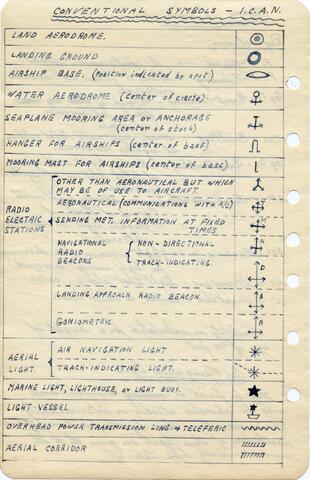 CONVENTIONAL SYMBOLS - I.C.A.N.
LAND AERODROME.
LANDING GROUND
AIRSHIP BASE. (Position indicated by spot.)
WATER AERODROME (center of circle)
SEAPLANE MOORING AREA or ANCHORAGE
(center of stock)
HANGER FOR AIRSHIPS (center of base)
MOORING MAST FOR AIRSHIPS (center of base)
RADIO ELECTRIC STATIONS
OTHER THAN AERONAUTICAL BUT WHICH
MAY BE OF USE TO AIRCRAFT.
AERONAUTICAL (COMMUNICATIONS WITH A/C)
SENDING MET. INFORMATION AT FIXED
TIMES
NAVIGATIONAL RADIO BEACONS
NON-DIRECTIONAL
TRACK-INDICATING.
D
LANDING APPROACH RADIO BEACON
A
GONIOMETRIC
R
AERIAL LIGHT.
AIR NAVIGATION LIGHT
TRACK-INDICATING LIGHT.
MARINE LIGHT, LIGHTHOUSE, or LIGHT BUOY.
LIGHT VESSEL
OVERHEAD POWER TRANSMISSION LINE & TELEFERIC
AERIAL CORRIDOR